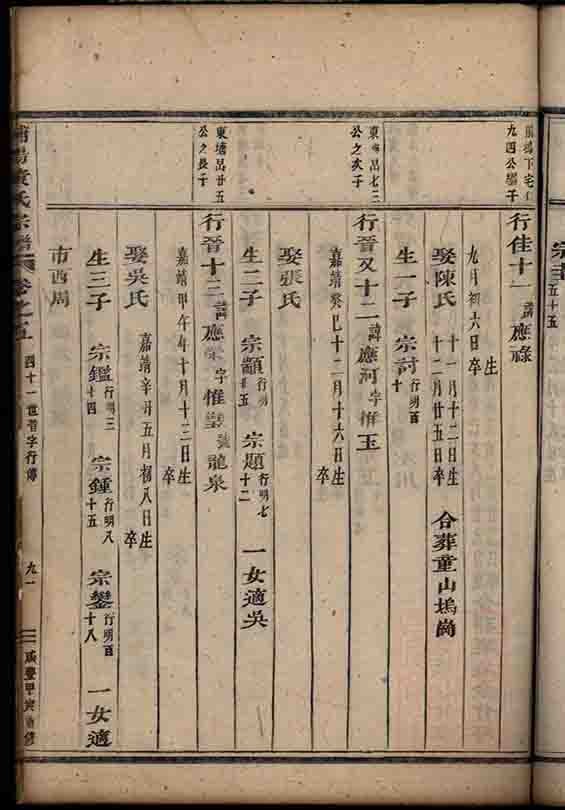 宗
五十五
九四公
子
行佳十一諱應祿
九月初六日
生
卒
娶陳氏
十一月十二日生
十二月廿五日卒
合葬童山塢崗
生一子
宗討
行明百
十
東塘呂七三
公之次子
行晉又十二諱應河字惟玉
嘉靖癸巳十二月十六日
生
卒
娶張氏
生二子
宗顓
行明
廿五
宗題
行明七
十二
一女適吳
東塘呂廿五
公之長子
行晉十三諱應
字惟
號龍泉
嘉靖甲午年十月十三日
生
卒
娶吳氏
嘉靖辛丑五月初八日
生
卒
生三子
宗鑑
行明三
十四
宗鍾
行明八
十五
宗鑾
行明百
十八
一女適
市西周
黃氏宗譜
卷之五
四十一世晉字行傳
九一
咸豐甲寅重修